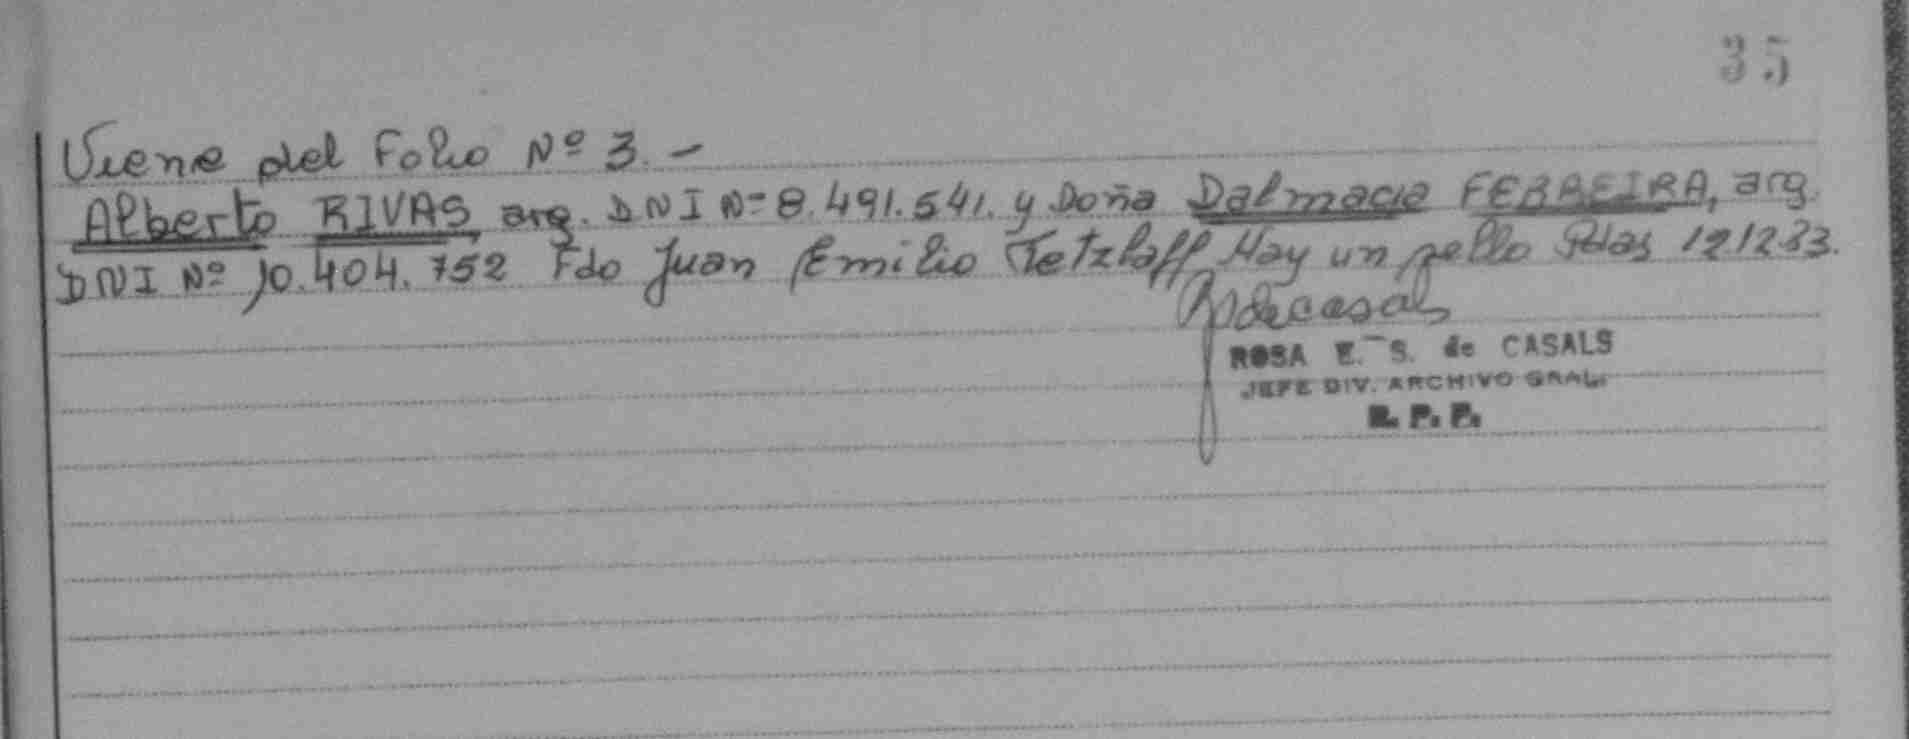 35
Viene del Folio Nº 3. -
Alberto RIVAS, arg. DNI Nº 8.491.541. y Doña Dalmacia FERREIRA, arg.
DNI Nº 10.404.752 Fdo Juan Emilio Tetzlaff Hay un sello Pdas 12/12.83.
ROSA E. S. de CASALS
JEFE DIV. ARCHIVO GRAL.
R. P. P.